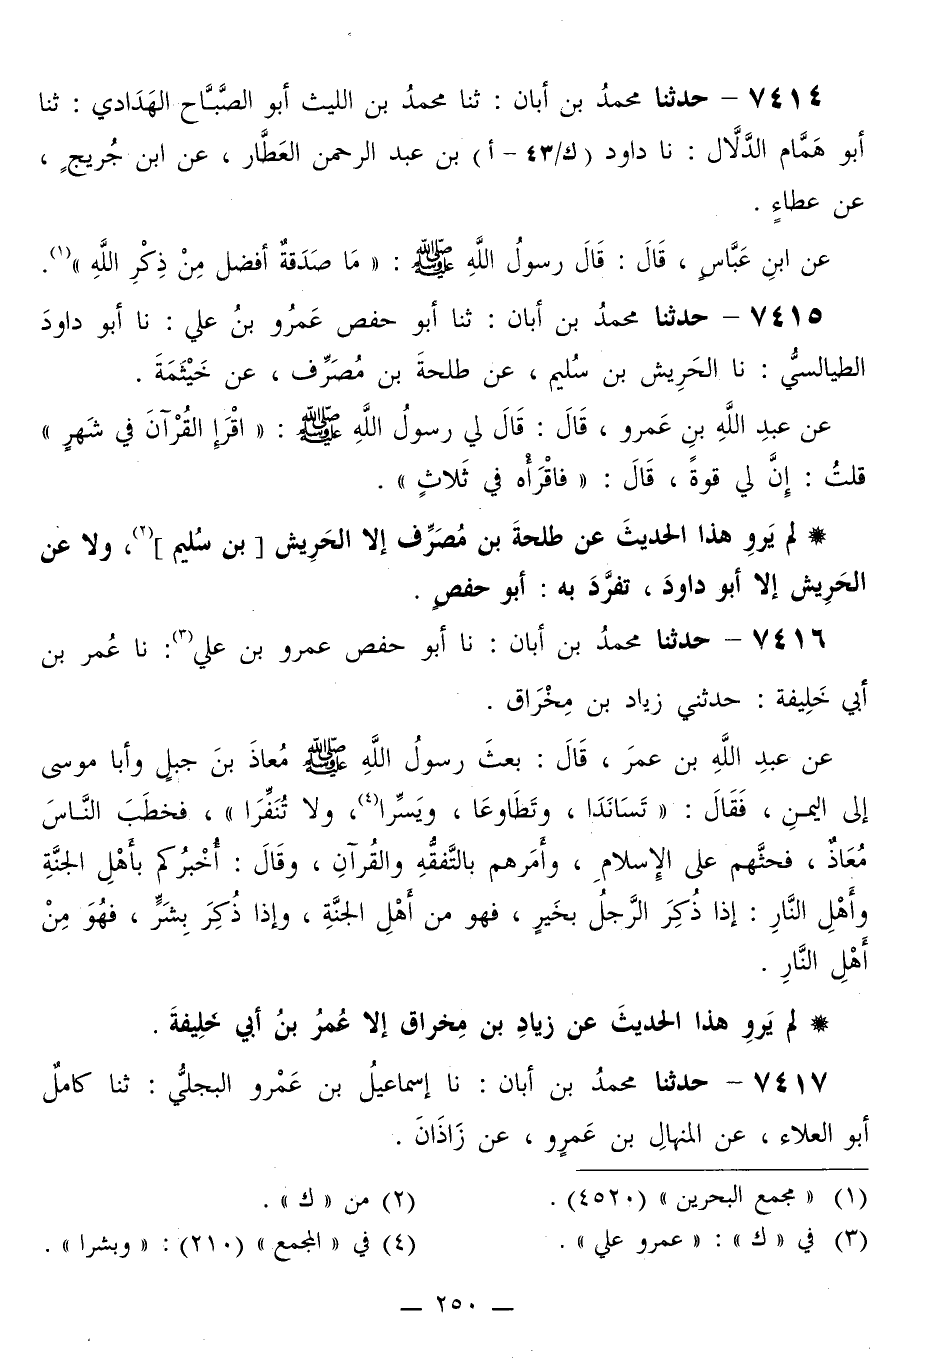 ٧٤١٤ – حدثنا محمدُ بن أبان : ثنا محمدُ بن الليث أبو الصَّبَّاح الهَدَادي : ثنا
أبو هَمَّام الدَّلَّال : نا داود (ك/٤٣ – أ) بن عبد الرحمن العَطَّار ، عن ابن جُريجٍ ،
عن عطاءٍ .
عن ابنِ عَبَّاسٍ ، قَالَ : قَالَ رسولُ اللَّهِ ﷺ : « مَا صَدَقةٌ أفضل مِنْ ذِكْرِ اللَّهِ »(١).
٧٤١٥ – حدثنا محمدُ بن أبان : ثنا أبو حفص عَمرُو بنُ علي : نا أبو داودَ
الطيالسيُّ : نا الحَرِيش بن سُليم ، عن طلحةَ بن مُصَرِّف ، عن خَيْثَمَةَ .
عن عبدِ اللَّهِ بنِ عَمرو ، قَالَ : قَالَ لي رسولُ اللَّهِ ﷺ : « اقْرَإِ القُرْآنَ في شَهرٍ »
قلتُ : إِنَّ لي قوةً ، قَالَ : « فاقْرَأْه في ثَلاثٍ » .
* لم يَروِ هذا الحديثَ عن طلحةَ بن مُصَرِّف إلا الحَرِيش [ بن سُليم ](٢)، ولا عن
الحَرِيش إلا أبو داودَ ، تفرَّدَ به : أبو حفصٍ .
٧٤١٦ – حدثنا محمدُ بن أبان : نا أبو حفص عمرو بن علي(٣): نا عُمر بن
أبي خَلِيفة : حدثني زياد بن مِخْرَاق .
عن عبدِ اللَّهِ بن عمرَ ، قَالَ : بعثَ رسولُ اللَّهِ ﷺ مُعاذَ بنَ جبلٍ وأبا موسى
إلى اليمنِ ، فَقَالَ : « تَسَانَدَا ، وتَطَاوعَا ، ويَسِّرا(٤)، ولا تُنَفِّرَا » ، فخطَبَ النَّاسَ
مُعَاذٌ ، فحثَّهم على الإِسلامِ ، وأَمَرهم بالتَّفقُّهِ والقُرآنِ ، وقَالَ : أُخْبرُكم بأَهْلِ الجنَّةِ
وأَهْلِ النَّارِ : إذا ذُكِرَ الرَّجلُ بخَيرٍ ، فهو من أَهْلِ الجنَّةِ ، وإذا ذُكِرَ بِشَرٍّ ، فهُوَ مِنْ
أَهْلِ النَّارِ .
* لم يَروِ هذا الحديثَ عن زيادِ بن مِخراق إلا عُمرُ بنُ أبي خَلِيفةَ .
٧٤١٧ – حدثنا محمدُ بن أبان : نا إسماعيلُ بن عَمْرو البجليُّ : ثنا كاملٌ
أبو العلاء ، عن المنهالِ بن عَمرٍو ، عن زَاذَانَ .
(١) « مجمع البحرين » (٤٥٢٠) . (٢) من « ك » .
(٣) في « ك » : « عمرو علي » . (٤) في « المجمع » (٢١٠) : « وبشرا » .
— ٢٥٠ —